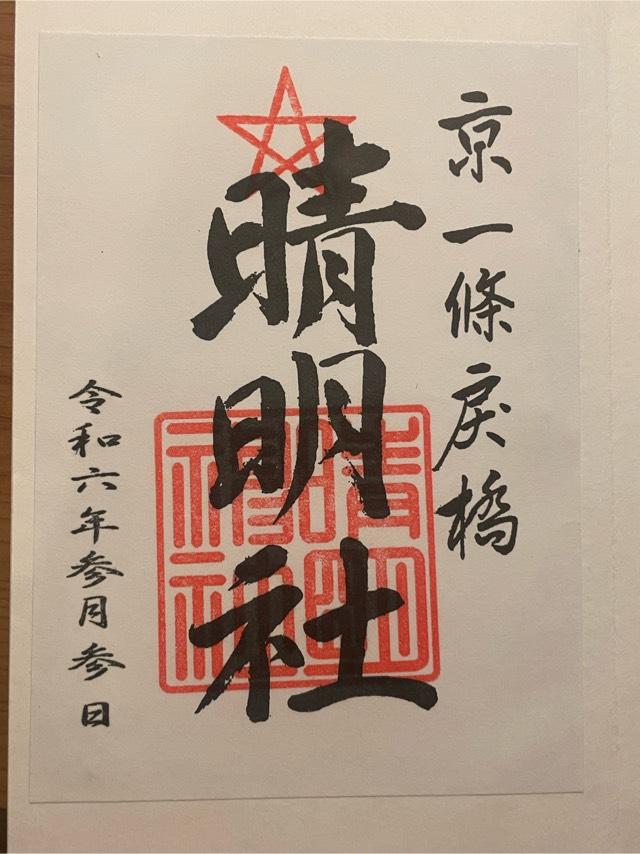 京一條戻橋
晴明社
令和六年参月参日